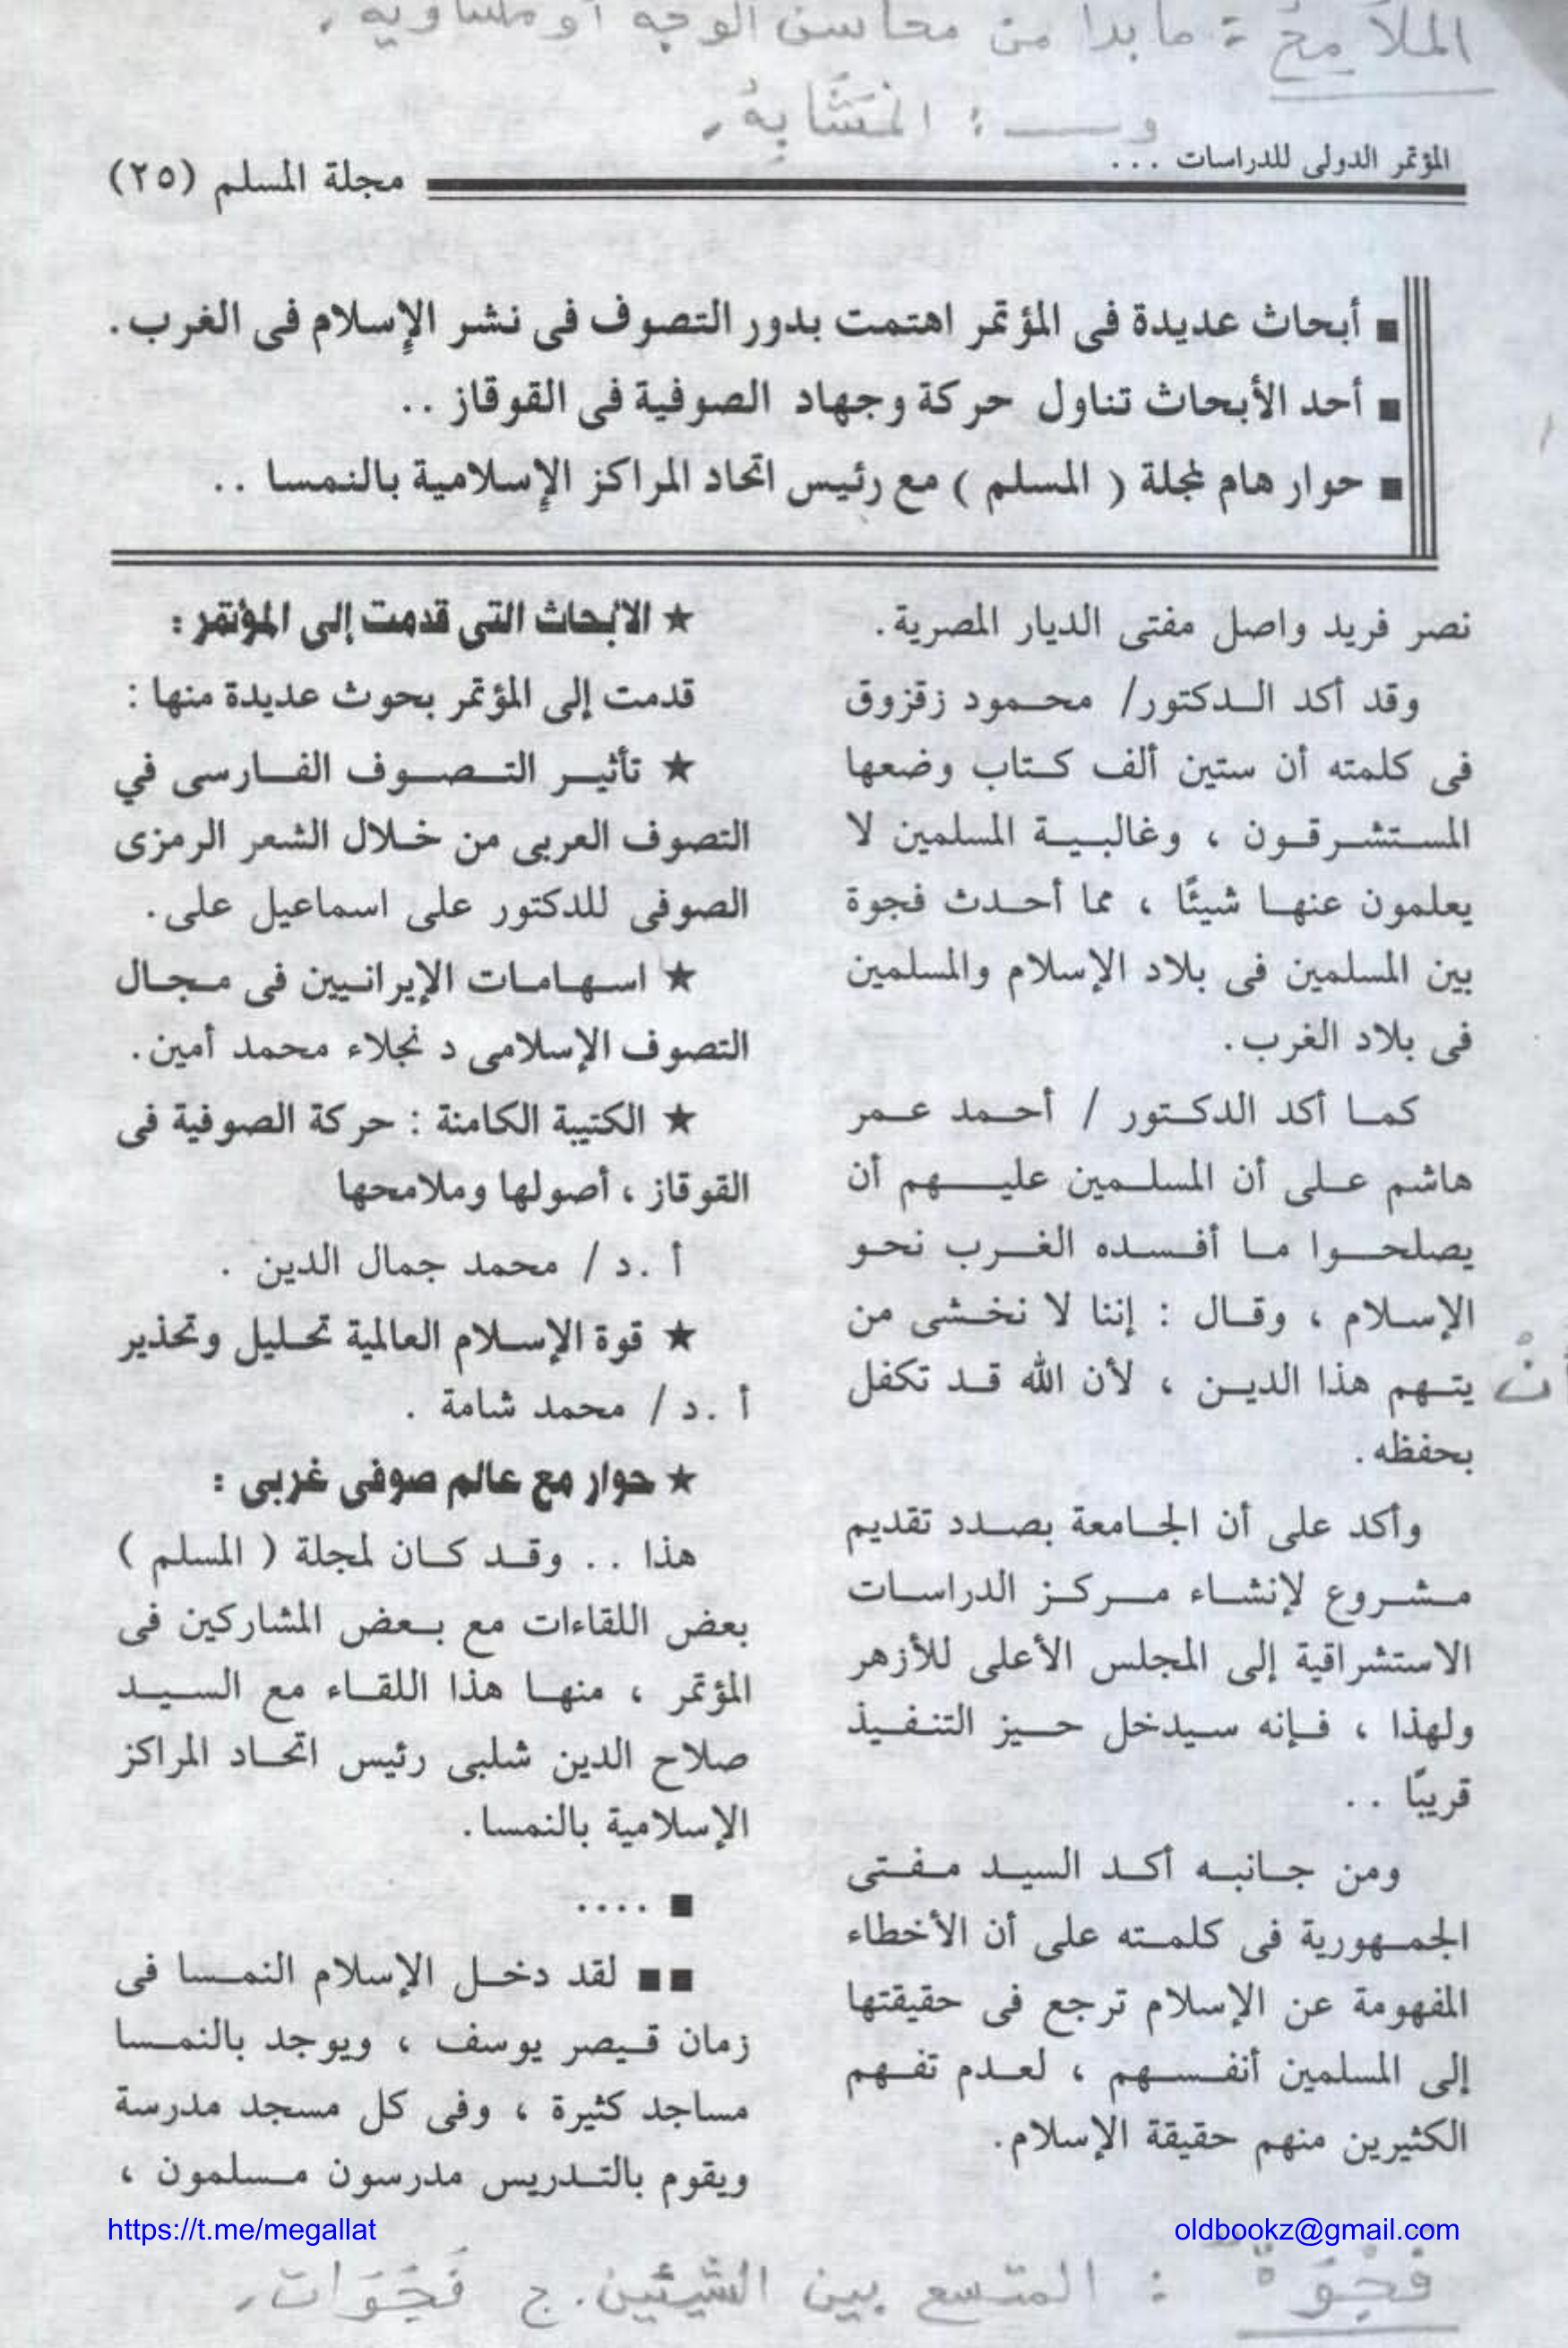 الملاَمِحُ : ما بدا من محاسن الوجه أو مساويه.
و ــــ : المَشَابِهُ.
المؤتمر الدولى للدراسات ...
مجلة المسلم (٢٥)
■ أبحاث عديدة فى المؤتمر اهتمت بدور التصوف فى نشر الإسلام فى الغرب.
■ أحد الأبحاث تناول حركة وجهاد الصوفية فى القوقاز ..
■ حوار هام لمجلة ( المسلم ) مع رئيس اتحاد المراكز الإسلامية بالنمسا ..
نصر فريد واصل مفتى الديار المصرية.
وقد أكد الدكتور/ محمود زقزوق
فى كلمته أن ستين ألف كتاب وضعها
المستشرقون ، وغالبية المسلمين لا
يعلمون عنها شيئًا ، مما أحدث فجوة
بين المسلمين فى بلاد الإسلام والمسلمين
فى بلاد الغرب.
كما أكد الدكتور / أحمد عمر
هاشم على أن المسلمين عليهم أن
يصلحوا ما أفسده الغرب نحو
الإسلام ، وقال : إننا لا نخشى من
أنْ
يتهم هذا الدين ، لأن الله قد تكفل
بحفظه.
وأكد على أن الجامعة بصدد تقديم
مشروع لإنشاء مركز الدراسات
الاستشراقية إلى المجلس الأعلى للأزهر
ولهذا ، فإنه سيدخل حيز التنفيذ
قريبًا ..
ومن جانبه أكد السيد مفتى
الجمهورية فى كلمته على أن الأخطاء
المفهومة عن الإسلام ترجع فى حقيقتها
إلى المسلمين أنفسهم ، لعدم تفهم
الكثيرين منهم حقيقة الإسلام.
★ الأبحاث التى قدمت إلى المؤتمر :
قدمت إلى المؤتمر بحوث عديدة منها :
★ تأثير التصوف الفارسى في
التصوف العربى من خلال الشعر الرمزى
الصوفى للدكتور على اسماعيل على.
★ اسهامات الإيرانيين فى مجال
التصوف الإسلامى د نجلاء محمد أمين.
★ الكتيبة الكامنة : حركة الصوفية فى
القوقاز ، أصولها وملامحها
أ .د / محمد جمال الدين .
★ قوة الإسلام العالمية تحليل وتحذير
أ .د / محمد شامة .
★ حوار مع عالم صوفى غربى :
هذا .. وقد كان لمجلة ( المسلم )
بعض اللقاءات مع بعض المشاركين فى
المؤتمر ، منها هذا اللقاء مع السيد
صلاح الدين شلبى رئيس اتحاد المراكز
الإسلامية بالنمسا.
■ ....
■■ لقد دخل الإسلام النمسا فى
زمان قيصر يوسف ، ويوجد بالنمسا
مساجد كثيرة ، وفى كل مسجد مدرسة
ويقوم بالتدريس مدرسون مسلمون ،
https://t.me/megallat
oldbookz@gmail.com
فَجْوَةٌ : المتسع بين الشيئين. ج فَجَوَات.